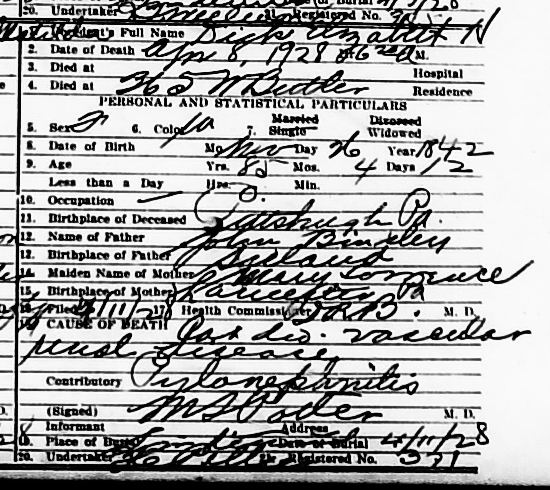 20. Undertaker Registered No.
Patient's Full Name Dick Elizabeth N
2. Date of Death Apr 8, 1928 at 6 20 a M.
3. Died at Hospital
4. Died at 365 W Butler Residence
PERSONAL AND STATISTICAL PARTICULARS
5. Sex F 6. Color W 7. Married Single Divorced Widowed
8. Date of Birth Mo. Nov Day 26 Year 1842
9. Age Yrs. 85 Mos. 4 Days 12
Less than a Day — Hrs. Min.
10. Occupation O.
11. Birthplace of Deceased Pittsburgh Pa.
12. Name of Father John Binxley
12. Birthplace of Father Ireland
14. Maiden Name of Mother Mary Torrence
15. Birthplace of Mother Pa
16. Filed 4/11/28 17. Health Commissioner M. D.
CAUSE OF DEATH Cardio. vascular
renal disease
Contributory Pyelonephritis
(Signed) M S Porter M. D.
Informant Address
19. Place of Burial Date of Burial 4/11/28
20. Undertaker 21. Registered No. 321